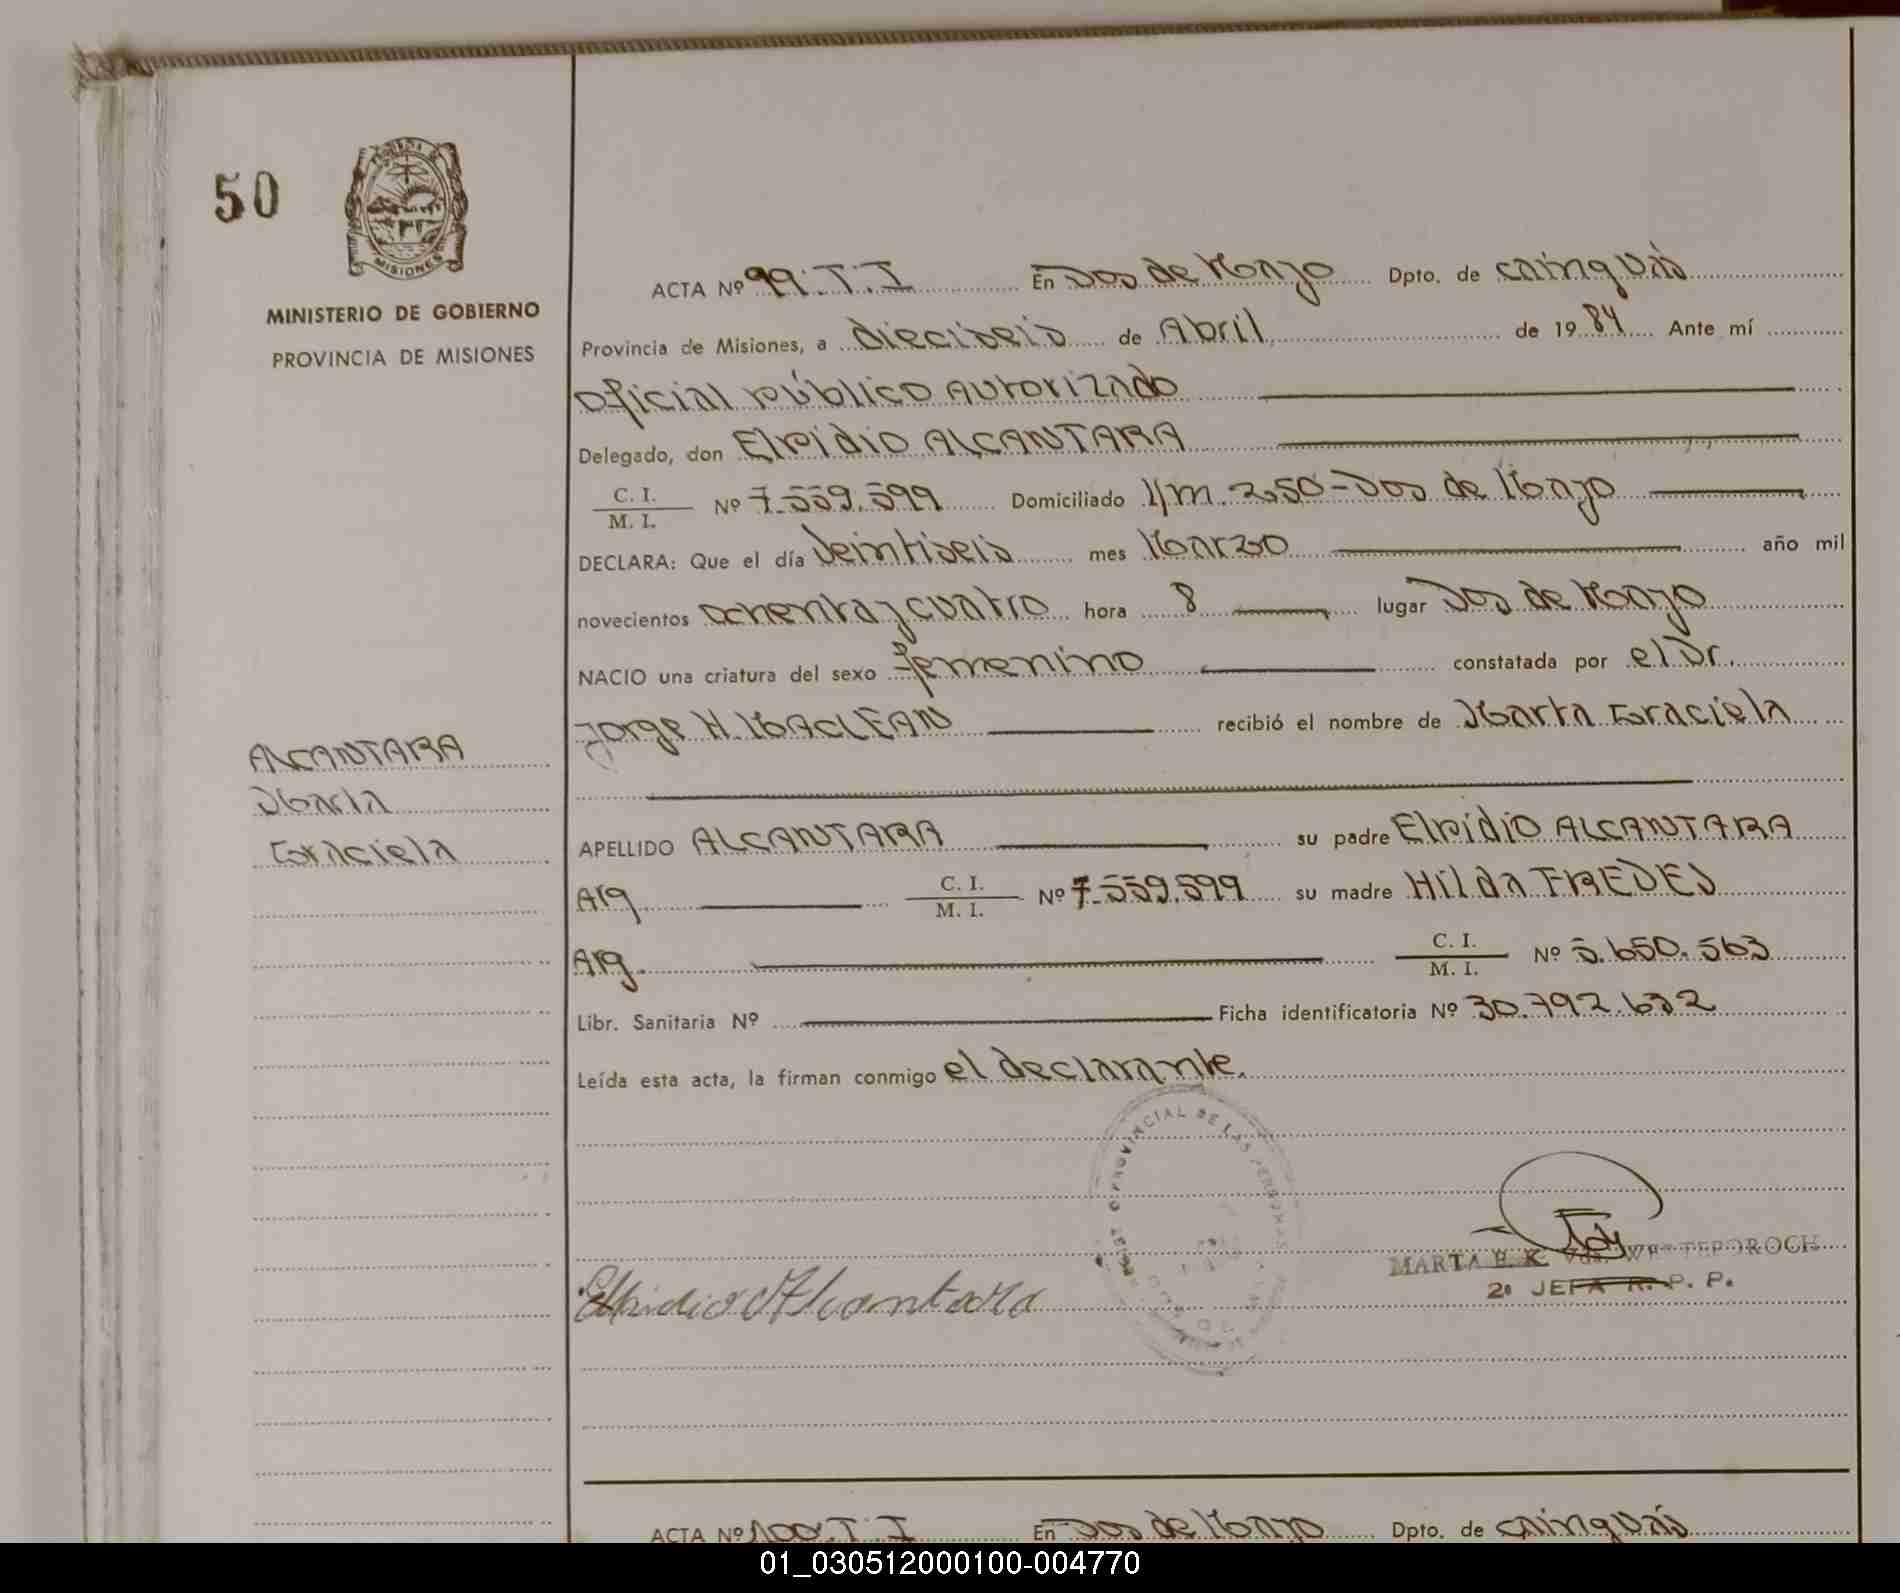 50
MISIONES
MINISTERIO DE GOBIERNO
PROVINCIA DE MISIONES
ACTA Nº 99. T. I En Dos de Mayo Dpto. de Cainguás
Provincia de Misiones, a dieciseis de Abril de 1984 Ante mí
Oficial público Autorizado
Delegado, don Elpidio ALCANTARA
C. I.
M. I. Nº 7.559.599 Domiciliado Km. 250 - Dos de Mayo
DECLARA: Que el día Veintiseis mes Marzo año mil
novecientos ochenta y cuatro hora 8 lugar Dos de Mayo
NACIO una criatura del sexo femenino constatada por el Dr.
Jorge H. MACLEAN recibió el nombre de Marta Graciela
ALCANTARA
Marta
Graciela
APELLIDO ALCANTARA su padre Elpidio ALCANTARA
Arg. C. I.
M. I. Nº 7.559.599 su madre Hilda FREDES
Arg. C. I.
M. I. Nº 5.650.563
Libr. Sanitaria Nº Ficha identificatoria Nº 30.792.632
Leída esta acta, la firman conmigo el declarante.
PROVINCIAL DE LAS PERSONAS
Elpidio Alcantara
MARTA E. K. Vda.
2º JEFA R. P. P.
ACTA Nº 100. T. I En Dos de Mayo Dpto. de Cainguás
01_030512000100-004770